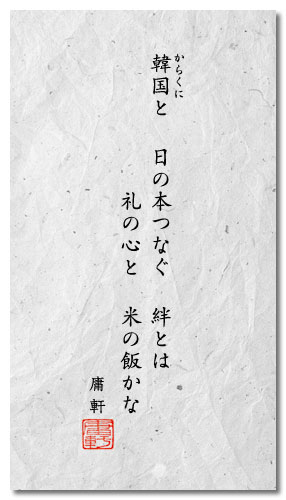 韓国と　日の本つなぐ　絆とは
からくに
礼の心と　米の飯かな
庸軒
庸軒